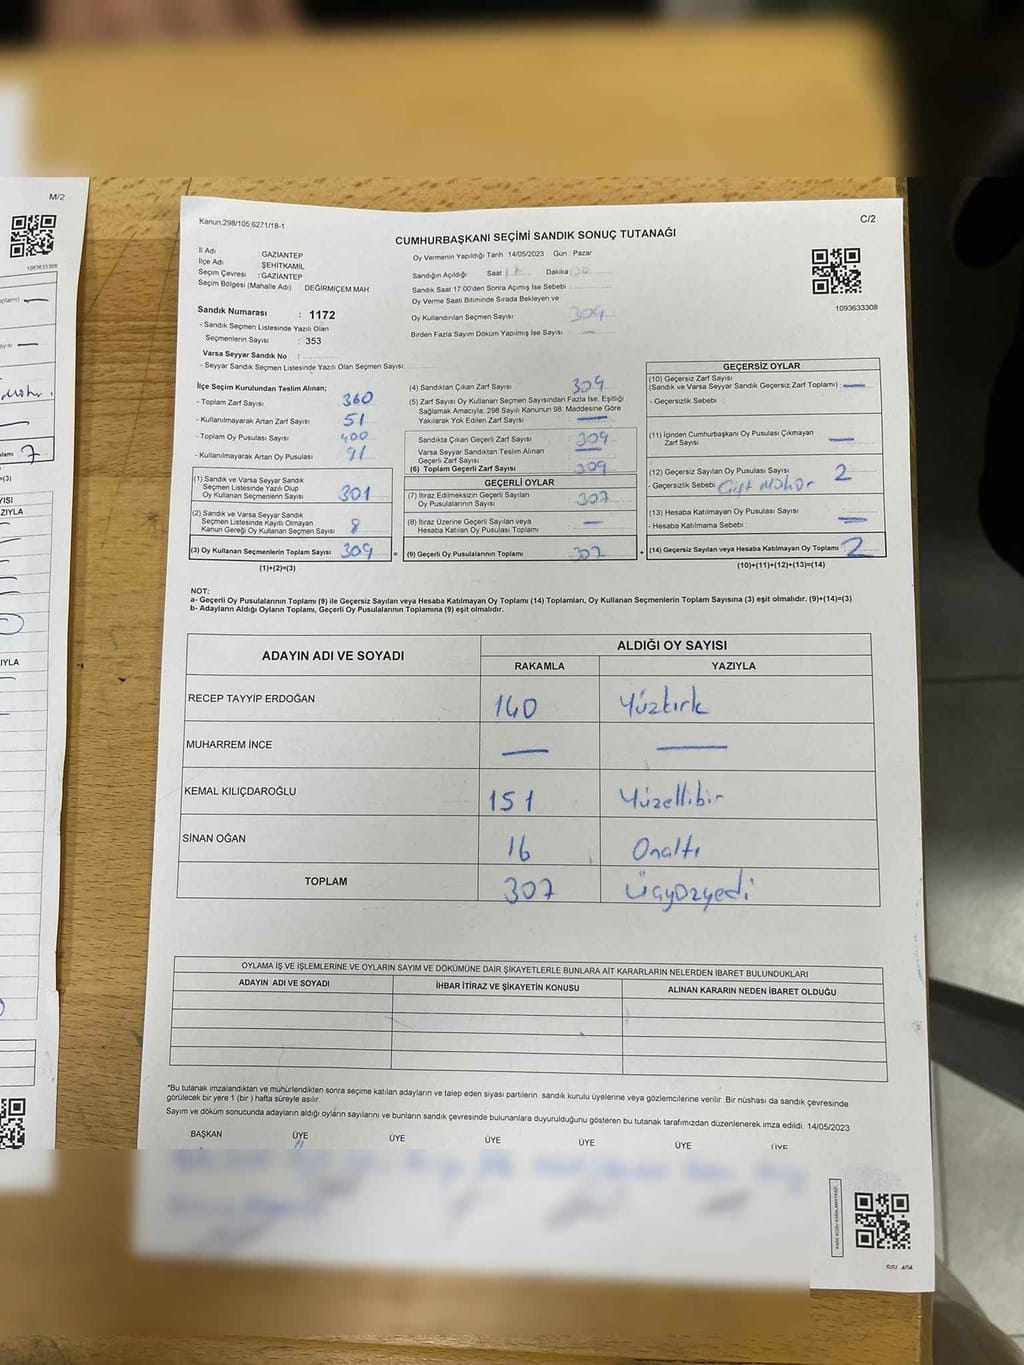 M/2
1093633308
Kanun:298/105 6271/18-1
C/2
CUMHURBAŞKANI SEÇİMİ SANDIK SONUÇ TUTANAĞI
1093633308
İl Adı : GAZİANTEP
İlçe Adı : ŞEHİTKAMİL
Seçim Çevresi : GAZİANTEP
Seçim Bölgesi (Mahalle Adı) : DEĞİRMİÇEM MAH
Sandık Numarası : 1172
- Sandık Seçmen Listesinde Yazılı Olan
Seçmenlerin Sayısı : 353
Varsa Seyyar Sandık No :
- Seyyar Sandık Seçmen Listesinde Yazılı Olan Seçmen Sayısı :
Oy Vermenin Yapıldığı Tarih :14/05/2023 Gün : Pazar
Sandığın Açıldığı Saat Dakika
Sandık Saat 17.00'den Sonra Açılmış İse Sebebi :
Oy Verme Saati Bitiminde Sırada Bekleyen ve
Oy Kullandırılan Seçmen Sayısı : 309
Birden Fazla Sayım Döküm Yapılmış İse Sayısı : —
İlçe Seçim Kurulundan Teslim Alınan;
- Toplam Zarf Sayısı : 360
- Kullanılmayarak Artan Zarf Sayısı : 51
- Toplam Oy Pusulası Sayısı : 400
- Kullanılmayarak Artan Oy Pusulası : 91
(1) Sandık ve Varsa Seyyar Sandık
Seçmen Listesinde Yazılı Olup
Oy Kullanan Seçmenlerin Sayısı : 301
(2) Sandık ve Varsa Seyyar Sandık
Seçmen Listesinde Kayıtlı Olmayan
Kanun Gereği Oy Kullanan Seçmen Sayısı : 8
(3) Oy Kullanan Seçmenlerin Toplam Sayısı : 309 =
(1)+(2)=(3)
(4) Sandıktan Çıkan Zarf Sayısı : 309
(5) Zarf Sayısı Oy Kullanan Seçmen Sayısından Fazla İse, Eşitliği
Sağlamak Amacıyla, 298 Sayılı Kanunun 98. Maddesine Göre
Yakılarak Yok Edilen Zarf Sayısı : —
Sandıkta Çıkan Geçerli Zarf Sayısı : 309
Varsa Seyyar Sandıktan Teslim Alınan
Geçerli Zarf Sayısı : —
(6) Toplam Geçerli Zarf Sayısı : 309
GEÇERLİ OYLAR
(7) İtiraz Edilmeksizin Geçerli Sayılan
Oy Pusulalarının Sayısı : 307
(8) İtiraz Üzerine Geçerli Sayılan veya
Hesaba Katılan Oy Pusulası Toplamı : —
(9) Geçerli Oy Pusulalarının Toplamı : 307 +
GEÇERSİZ OYLAR
(10) Geçersiz Zarf Sayısı
(Sandık ve Varsa Seyyar Sandık Geçersiz Zarf Toplamı) : —
- Geçersizlik Sebebi :
(11) İçinden Cumhurbaşkanı Oy Pusulası Çıkmayan
Zarf Sayısı : —
(12) Geçersiz Sayılan Oy Pusulası Sayısı : 2
- Geçersizlik Sebebi : Çift Mühür
(13) Hesaba Katılmayan Oy Pusulası Sayısı : —
- Hesaba Katılmama Sebebi :
(14) Geçersiz Sayılan veya Hesaba Katılmayan Oy Toplamı : 2
(10)+(11)+(12)+(13)=(14)
NOT:
a- Geçerli Oy Pusulalarının Toplamı (9) ile Geçersiz Sayılan veya Hesaba Katılmayan Oy Toplamı (14) Toplamları, Oy Kullanan Seçmenlerin Toplam Sayısına (3) eşit olmalıdır. (9)+(14)=(3)
b- Adayların Aldığı Oyların Toplamı, Geçerli Oy Pusulalarının Toplamına (9) eşit olmalıdır.
ADAYIN ADI VE SOYADI
ALDIĞI OY SAYISI
RAKAMLA YAZIYLA
RECEP TAYYİP ERDOĞAN 140 Yüzkırk
MUHARREM İNCE — —
KEMAL KILIÇDAROĞLU 151 Yüzellibir
SİNAN OĞAN 16 Onaltı
TOPLAM 307 Üçyüzyedi
OYLAMA İŞ VE İŞLEMLERİNE VE OYLARIN SAYIM VE DÖKÜMÜNE DAİR ŞİKAYETLERLE BUNLARA AİT KARARLARIN NELERDEN İBARET BULUNDUKLARI
ADAYIN ADI VE SOYADI İHBAR İTİRAZ VE ŞİKAYETİN KONUSU ALINAN KARARIN NEDEN İBARET OLDUĞU
*Bu tutanak imzalandıktan ve mühürlendikten sonra seçime katılan adayların ve talep eden siyasi partilerin sandık kurulu üyelerine veya gözlemcilerine verilir. Bir nüshası da sandık çevresinde
görülecek bir yere 1 (bir ) hafta süreyle asılır.
Sayım ve döküm sonucunda adayların aldığı oyların sayılarını ve bunların sandık çevresinde bulunanlara duyurulduğunu gösteren bu tutanak tarafımızdan düzenlenerek imza edildi. 14/05/2023
BAŞKAN ÜYE ÜYE ÜYE ÜYE ÜYE ÜYE